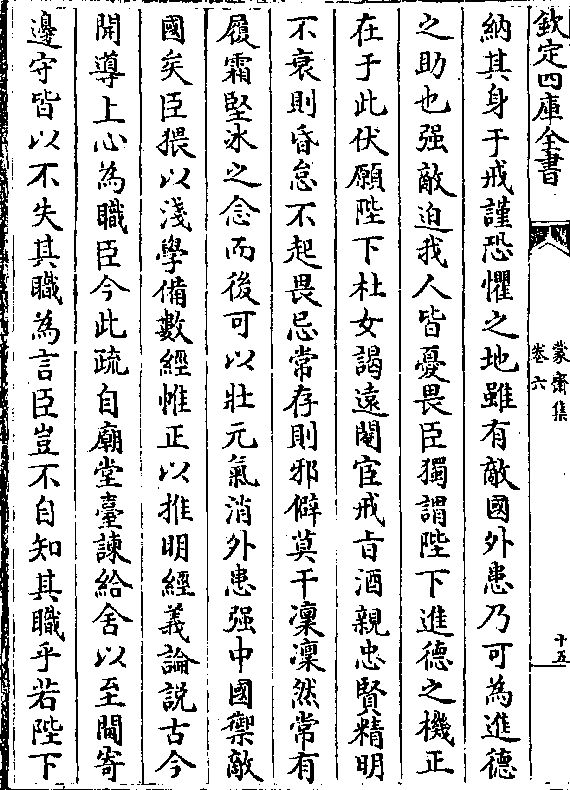 欽定四庫全書
蒙齋集
卷六
十五
納其身于戒謹恐懼之地雖有敵國外患乃可為進德
之助也强敵迫我人皆憂畏臣獨謂陛下進德之機正
在于此伏願陛下杜女謁遠閹宦戒旨酒親忠賢精明
不衰則昏怠不起畏忌常存則邪僻莫干凜凜然常有
履霜堅冰之念而後可以壯元氣消外患强中國禦敵
國矣臣猥以淺學備數經帷正以推明經義論説古今
開導上心為職臣今此疏自廟堂臺諫給舍以至閫寄
邊守皆以不失其職為言臣豈不自知其職乎若陛下